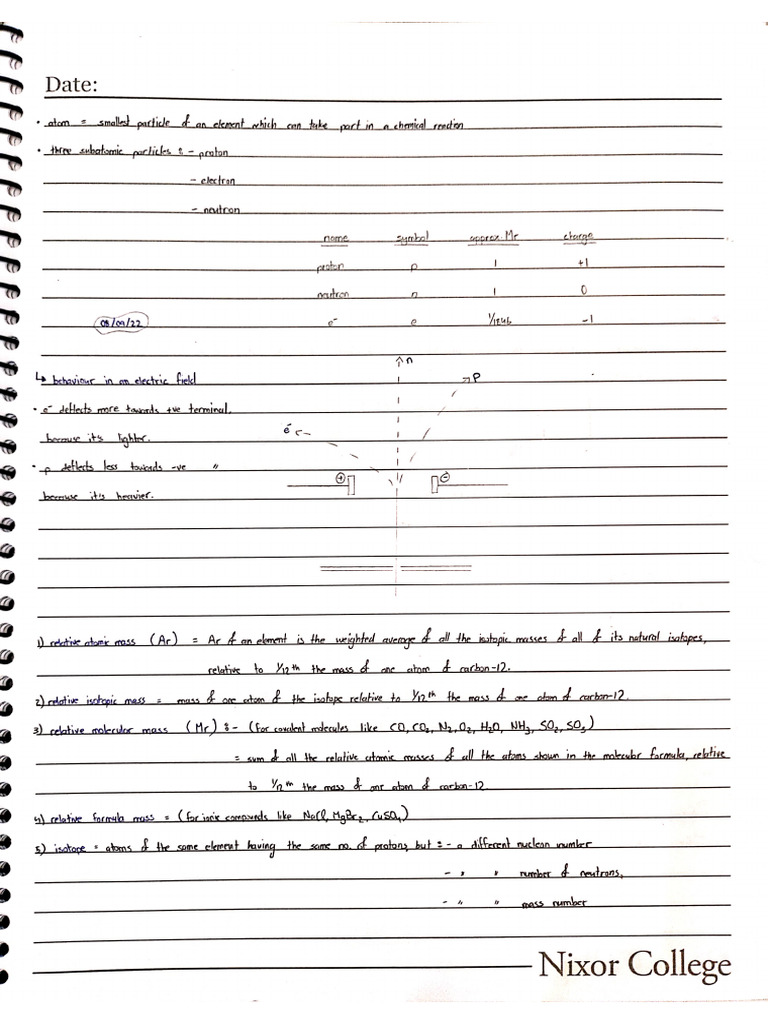 Date:
• atom = smallest particle of an element which can take part in a chemical reaction
• three subatomic particles :- - proton
- electron
- neutron
name symbol approx. Mr charge
proton p 1 +1
neutron n 1 0
08/09/22 e⁻ e 1/1846 -1
n
↳ behaviour in an electric field p
• e⁻ deflects more towards +ve terminal,
because it's lighter. e⁻
• p deflects less towards -ve "
because it's heavier. + -
1) relative atomic mass (Ar) = Ar of an element is the weighted average of all the isotopic masses of all of its natural isotopes,
relative to 1/12th the mass of one atom of carbon-12.
2) relative isotopic mass = mass of one atom of the isotope relative to 1/12th the mass of one atom of carbon-12.
3) relative molecular mass (Mr) :- (for covalent molecules like CO, CO₂, N₂, O₂, H₂O, NH₃, SO₂, SO₃)
= sum of all the relative atomic masses of all the atoms shown in the molecular formula, relative
to 1/12th the mass of one atom of carbon-12
4) relative formula mass = (for ionic compounds like NaCl, MgBr₂, CuSO₄)
5) isotope = atoms of the same element having the same no. of protons, but :- - a different nucleon number
- " " number of neutrons,
- " " mass number
Nixor College